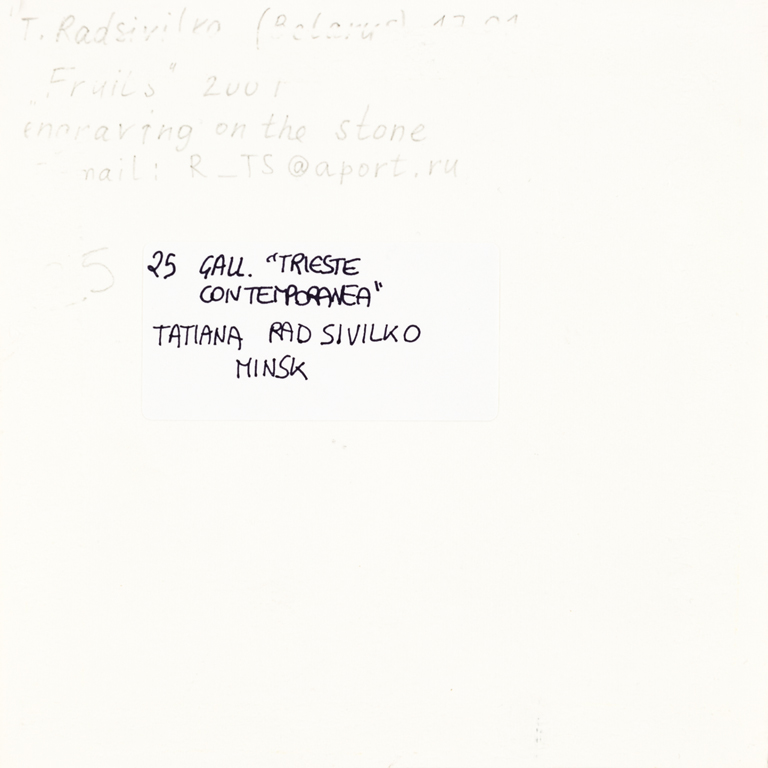 T. Radsivilko (Belarus)
„Fruits“ 2001
engraving on the stone
mail: R_TS@aport.ru
25
25 GALL. "TRIESTE
CONTEMPORANEA"
TATIANA RADSIVILKO
MINSK